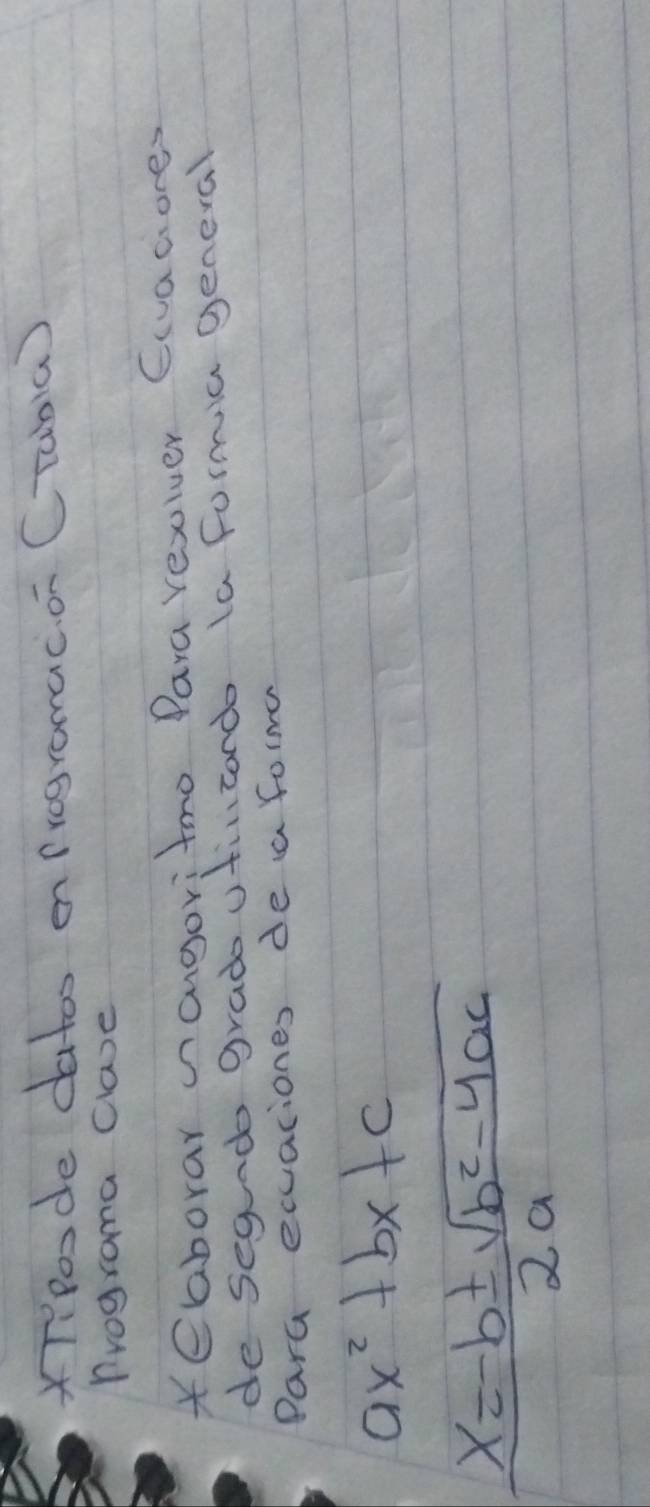 *Tipos de datos en Programación (Tabla)
Programa Clave
*Elaborar un angoritmo Para resolver Ecuaciones
de segundo grado utilizando la formula general
Para ecuaciones de la forma
ax² + bx + c
x = -b ± √b² - 4ac
2a